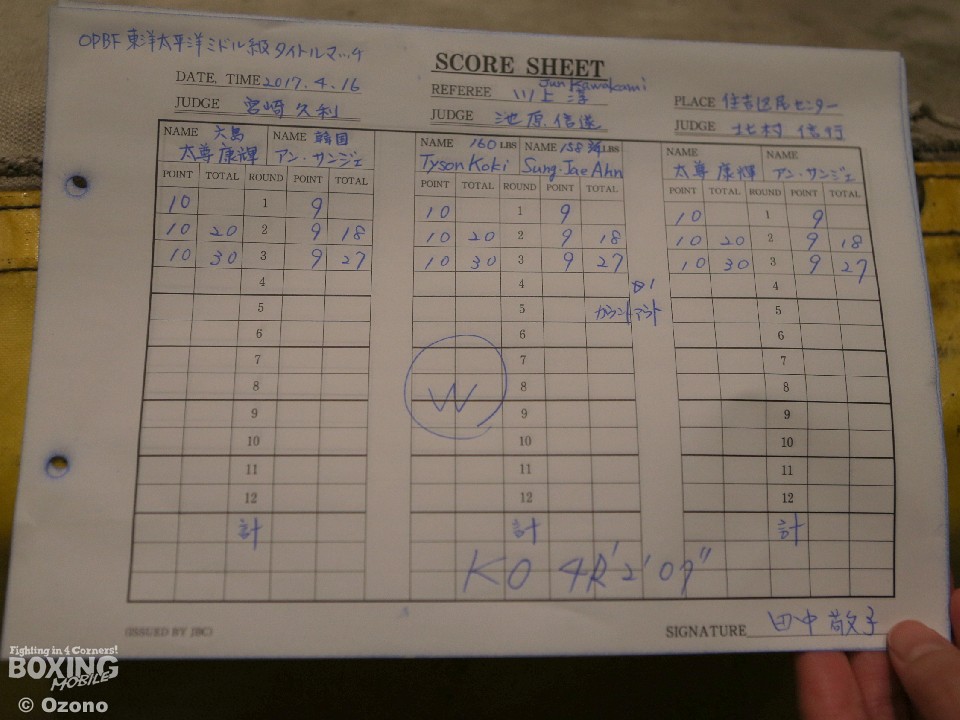 OPBF 東洋太平洋ミドル級タイトルマッチ
SCORE SHEET
DATE, TIME 2017.4.16
REFEREE 川上 淳 Jun Kawakami
PLACE 住吉区民センター
JUDGE 宮崎 久利
JUDGE 池原 信遂
JUDGE 北村 信行
NAME 大島 NAME 韓国
太尊 康輝 アン・サンジェ
NAME 160 LBS NAME 158 LBS
Tyson Koki Sung-Jae Ahn
NAME NAME
太尊 康輝 アン・サンジェ
POINT TOTAL ROUND POINT TOTAL POINT TOTAL ROUND POINT TOTAL POINT TOTAL ROUND POINT TOTAL
10 1 9 10 1 9 10 1 9
10 20 2 9 18 10 20 2 9 18 10 20 2 9 18
10 30 3 9 27 10 30 3 9 27 10 30 3 9 27
4 4 4
5 5 カウントアウト 5
6 6 6
7 7 7
8 W 8 8
9 9 9
10 10 10
11 11 11
12 12 12
計 計 計
KO 4R 2'09"
(ISSUED BY JBC)
SIGNATURE 田中 敬子
Fighting in 4 Corners!
BOXING
MOBILE
© Ozono